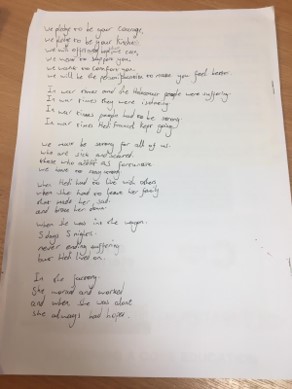 we pledge to be your courage,
we pledge to be your
we will
we want to support you,
we want to comfort you.
we will be the person to make you feel better.
In war times and the Holocaust people were suffering.
In war times they were
In war times people had to be strong.
In war times Hedi kept going.
we must be strong for all of us.
who are sick and scared.
those who
we have to
when Hedi had to live with others
when she had to leave her family
that made her sad.
and broke her down.
when she was in the wagon.
3 days 3 nights.
never ending suffering.
but Hedi lived on.
In the
She worked and worked
and when she was alone
she always had hope.